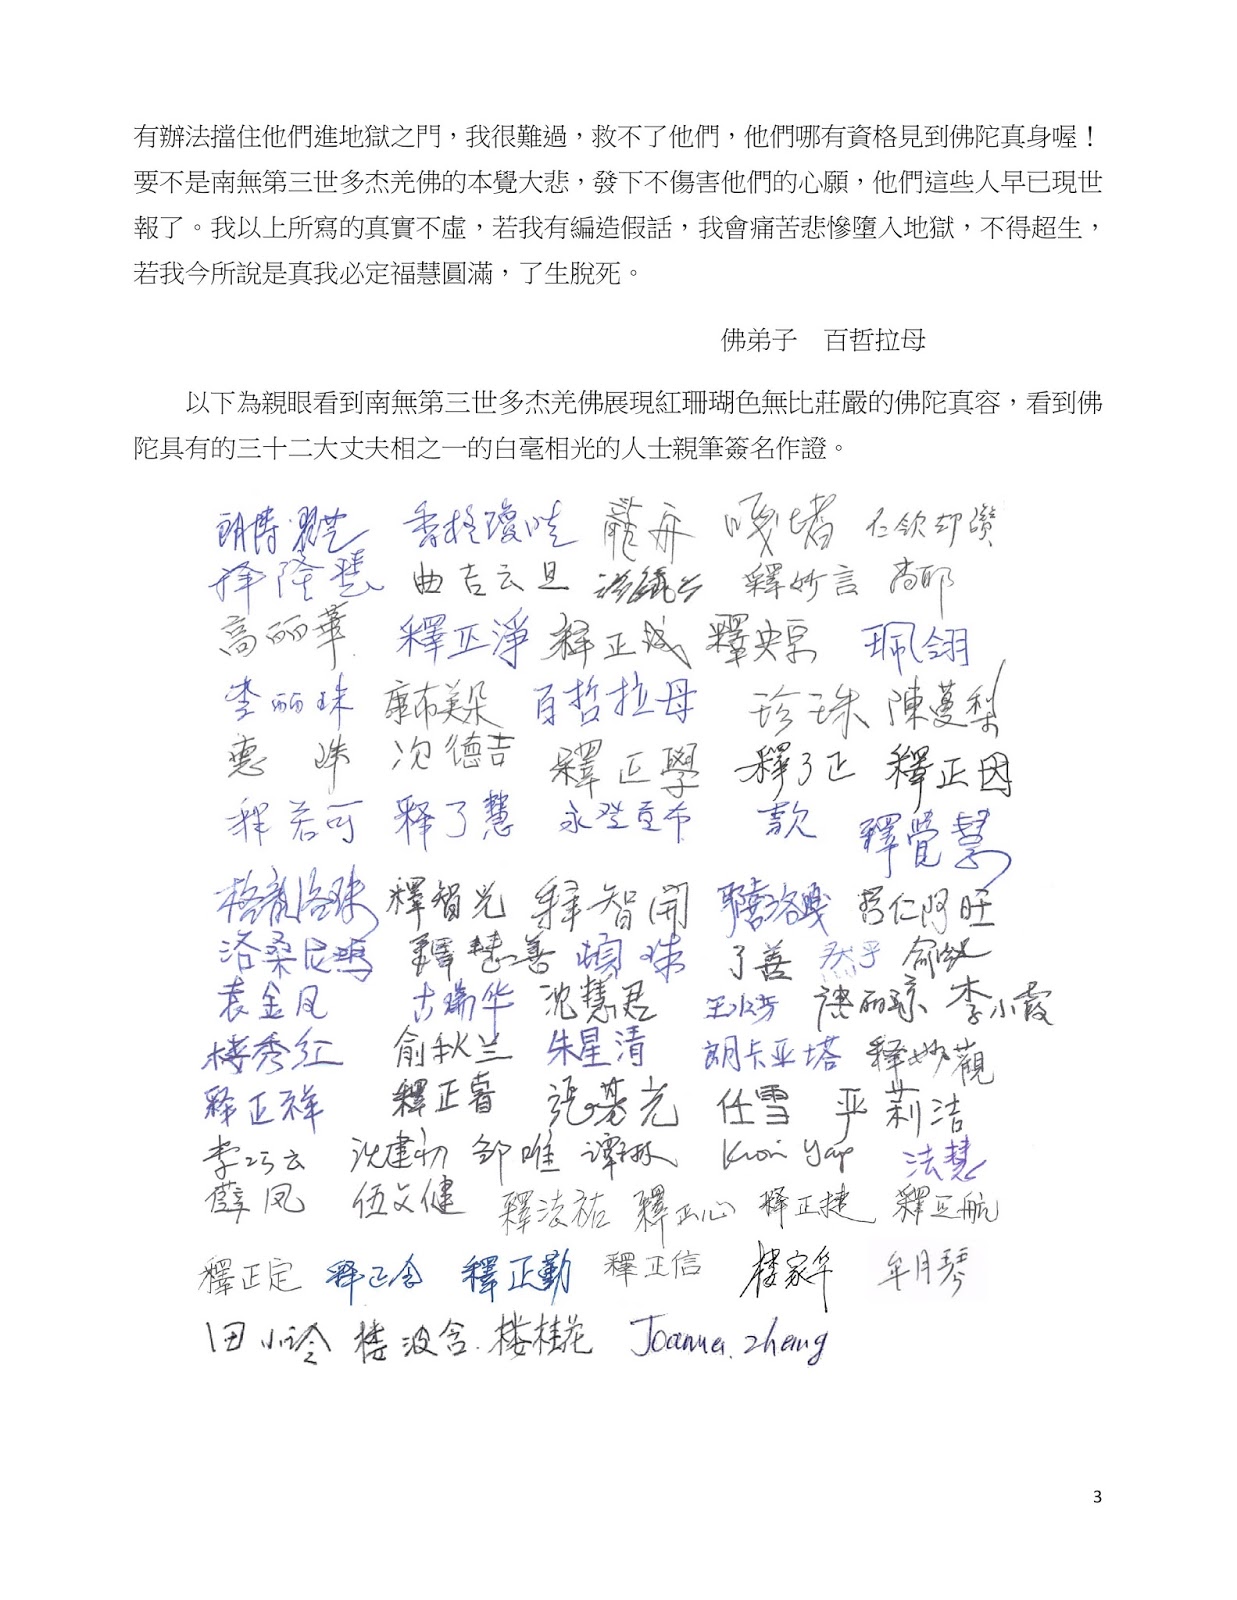 有辦法擋住他們進地獄之門，我很難過，救不了他們，他們哪有資格見到佛陀真身喔！
要不是南無第三世多杰羌佛的本覺大悲，發下不傷害他們的心願，他們這些人早已現世
報了。我以上所寫的真實不虛，若我有編造假話，我會痛苦悲慘墮入地獄，不得超生，
若我今所說是真我必定福慧圓滿，了生脫死。
佛弟子　百哲拉母
以下為親眼看到南無第三世多杰羌佛展現紅珊瑚色無比莊嚴的佛陀真容，看到佛
陀具有的三十二大丈夫相之一的白毫相光的人士親筆簽名作證。
龍舟 嘎堵 仁欽却讚
释隆慧 曲吉云旦 釋妙言 尚耶
高丽華 釋正淨 釋正成 珮翎
李丽珠 康布美朵 百哲拉母 珍珠 陳蔓梨
惠珠 次德吉 釋正學 釋了正 釋正因
释若可 释了慧 釋覺慧
格龍洛珠 釋智光 释智開 若仁阿旺
洛桑尼瑪 釋慧善 頓珠 了善 然乎
袁金凤 古瑞华 沈慧君 李小霞
楼秀红 俞秋兰 朱星清 朗卡亚塔 释妙觀
释正祥 釋正睿 任雪 严莉洁
李巧云 沈建初 邹唯 谭琳 法慧
薛凤 伍文健 釋法祐 釋正心 释正捷 釋正航
釋正定 释正念 釋正勤 釋正信 楼家华 牟月琴
田小玲 楼波含 楼桂花 Joanna. Zheng
3